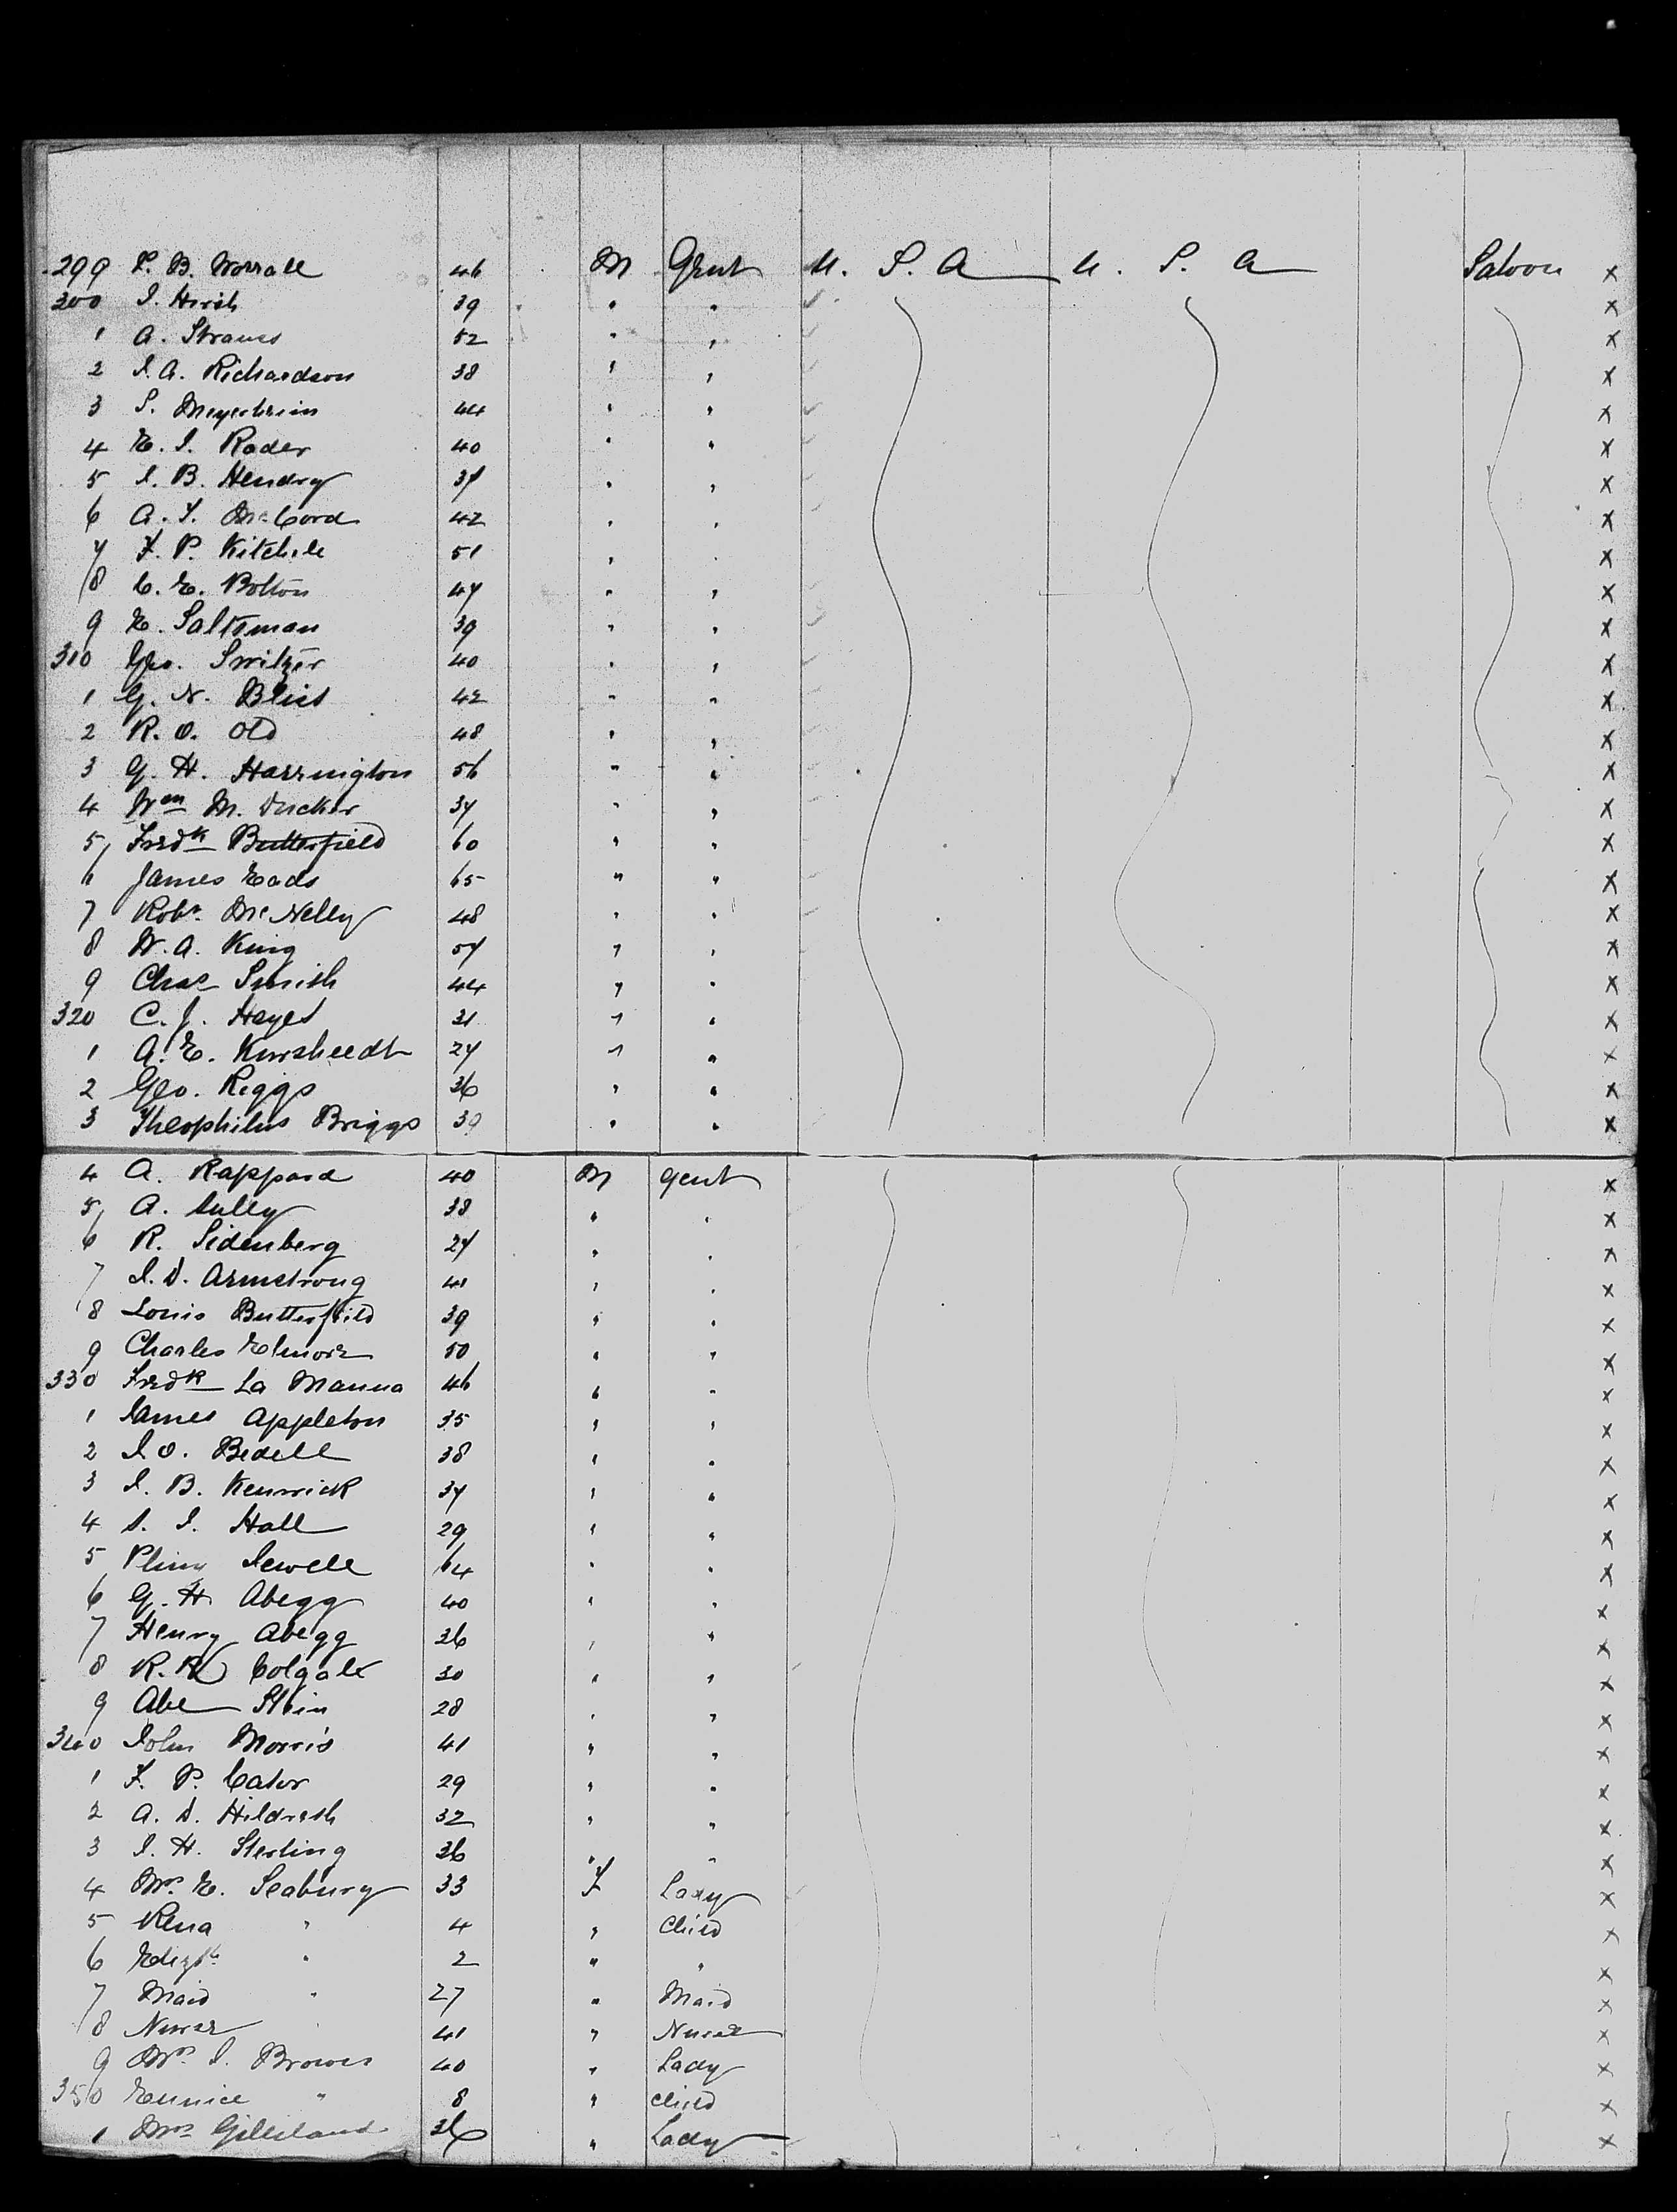 299 P. B. Worrall 46 M Gent U. S. A U. S. A Saloon x
300 I. Hirsh 39 " " x
1 A. Strauss 52 " " x
2 I. A. Richardson 38 " " x
3 S. Meyerheim 44 " " x
4 E. I. Rader 40 " " x
5 I. B. Hendry 37 " " x
6 A. Y. McCord 42 " " x
7 F. P. Kitchele 51 " " x
8 C. E. Bolton 47 " " x
9 E. Saltsman 39 " " x
310 Geo. Switzer 40 " " x
1 G. N. Bliss 42 " " x
2 R. O. Old 48 " " x
3 G. H. Harrington 56 " " x
4 Wm M. Ducker 37 " " x
5 Fredk Butterfield 60 " " x
6 James Eads 65 " " x
7 Robt. McNelly 48 " " x
8 W. A. King 57 " " x
9 Chas Smith 44 " " x
320 C. J. Hayes 31 " " x
1 A. E. Kursheedt 27 " " x
2 Geo. Riggs 36 " " x
3 Theophilus Briggs 39 " " x
4 A. Rappard 40 M Gent x
5 A. Sully 38 " " x
6 R. Sidenberg 27 " " x
7 I. D. Armstrong 41 " " x
8 Louis Butterfield 39 " " x
9 Charles Elmore 50 " " x
330 Fredk La Manna 46 " " x
1 James Appleton 35 " " x
2 I O. Bedell 38 " " x
3 I. B. Kenwick 37 " " x
4 S. I. Hall 29 " " x
5 Pliny Jewell 64 " " x
6 G. H Abegg 40 " " x
7 Henry Abegg 36 " " x
8 R. R Colgate 30 " " x
9 Abe Stein 28 " " x
340 John Morris 41 " " x
1 F. P. Cator 29 " " x
2 A. D. Hildreth 32 " " x
3 I. H. Sterling 36 " " x
4 Mrs. E. Seabury 33 F Lady x
5 Rena " 4 " Child x
6 Elizth " 2 " " x
7 Maid " 27 " Maid x
8 Nurse " 41 " Nurse x
9 Mrs. I. Brown 40 " Lady x
350 Eunice " 8 " Child x
1 Mrs Gilliland 36 " Lady x